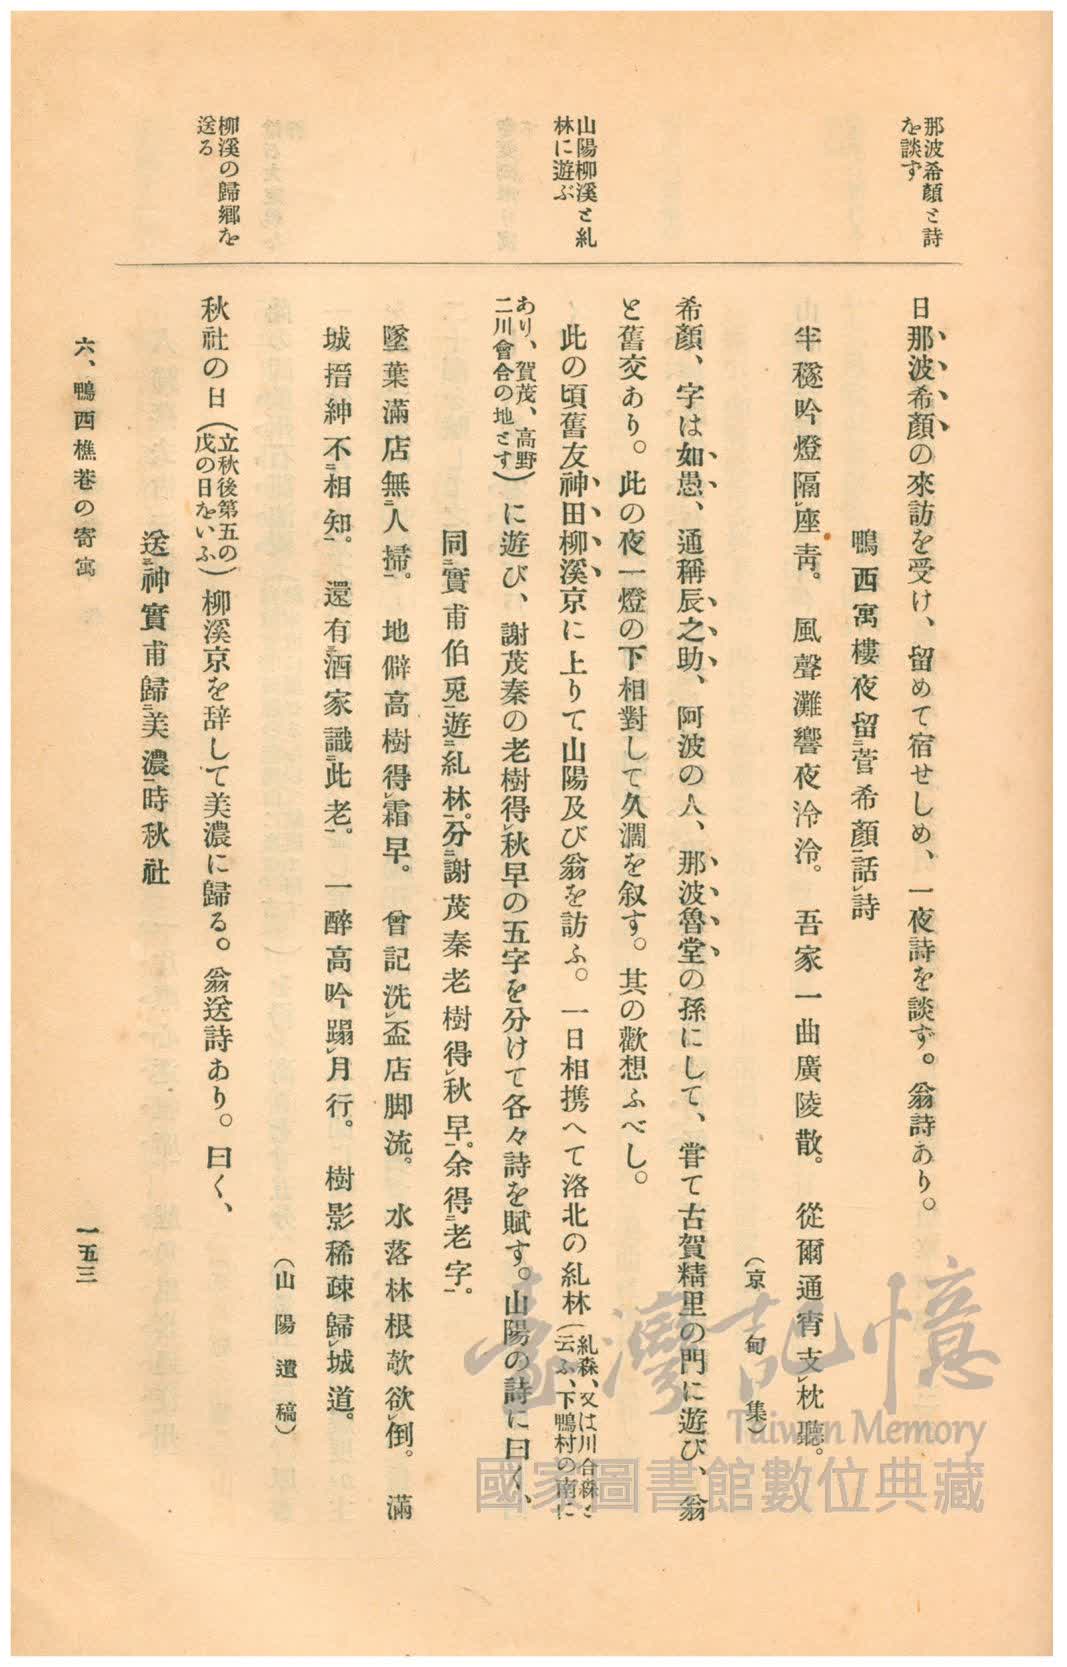 那波希顏と詩
を談ず
山陽柳溪と糺
林に遊ぶ
柳溪の歸鄕を
送る
日那波希顏の來訪を受け、留めて宿せしめ、一夜詩を談ず。翁詩あり。
鴨西寓樓夜留二菅希顏一話レ詩
半穟吟燈隔レ座靑。風聲灘響夜泠泠。吾家一曲廣陵散。從爾通宵支レ枕聽。
(京甸集)
希顏、字は如愚、通稱辰之助、阿波の人、那波魯堂の孫にして、甞て古賀精里の門に遊び、翁
と舊交あり。此の夜一燈の下相對して久濶を叙す。其の歡想ふべし。
此の頃舊友神田柳溪京に上りて山陽及び翁を訪ふ。一日相携へて洛北の糺林(糺森、又は川合森と云ふ、下鴨村の南に
あり、賀茂、高野二川會合の地とす)に遊び、謝茂秦の老樹得レ秋早の五字を分けて各々詩を賦す。山陽の詩に曰く、
同二實甫伯兎一遊二糺林一。分二謝茂秦老樹得レ秋早一。余得二老字一。
墜葉滿店無二人掃一。地僻高樹得レ霜早。曾記洗レ盃店脚流。水落林根欹欲レ倒。滿
城搢紳不二相知一。還有三酒家識二此老一。一醉高吟蹋レ月行。樹影稀疎歸レ城道。
(山陽遺稿)
秋社の日(立秋後第五の戊の日をいふ)柳溪京を辞して美濃に歸る。翁送詩あり。曰く、
送三神實甫歸二美濃一時秋社
六、鴨西樵巷の寄寓
一五三
臺灣記憶
Taiwan Memory
國家圖書館數位典藏